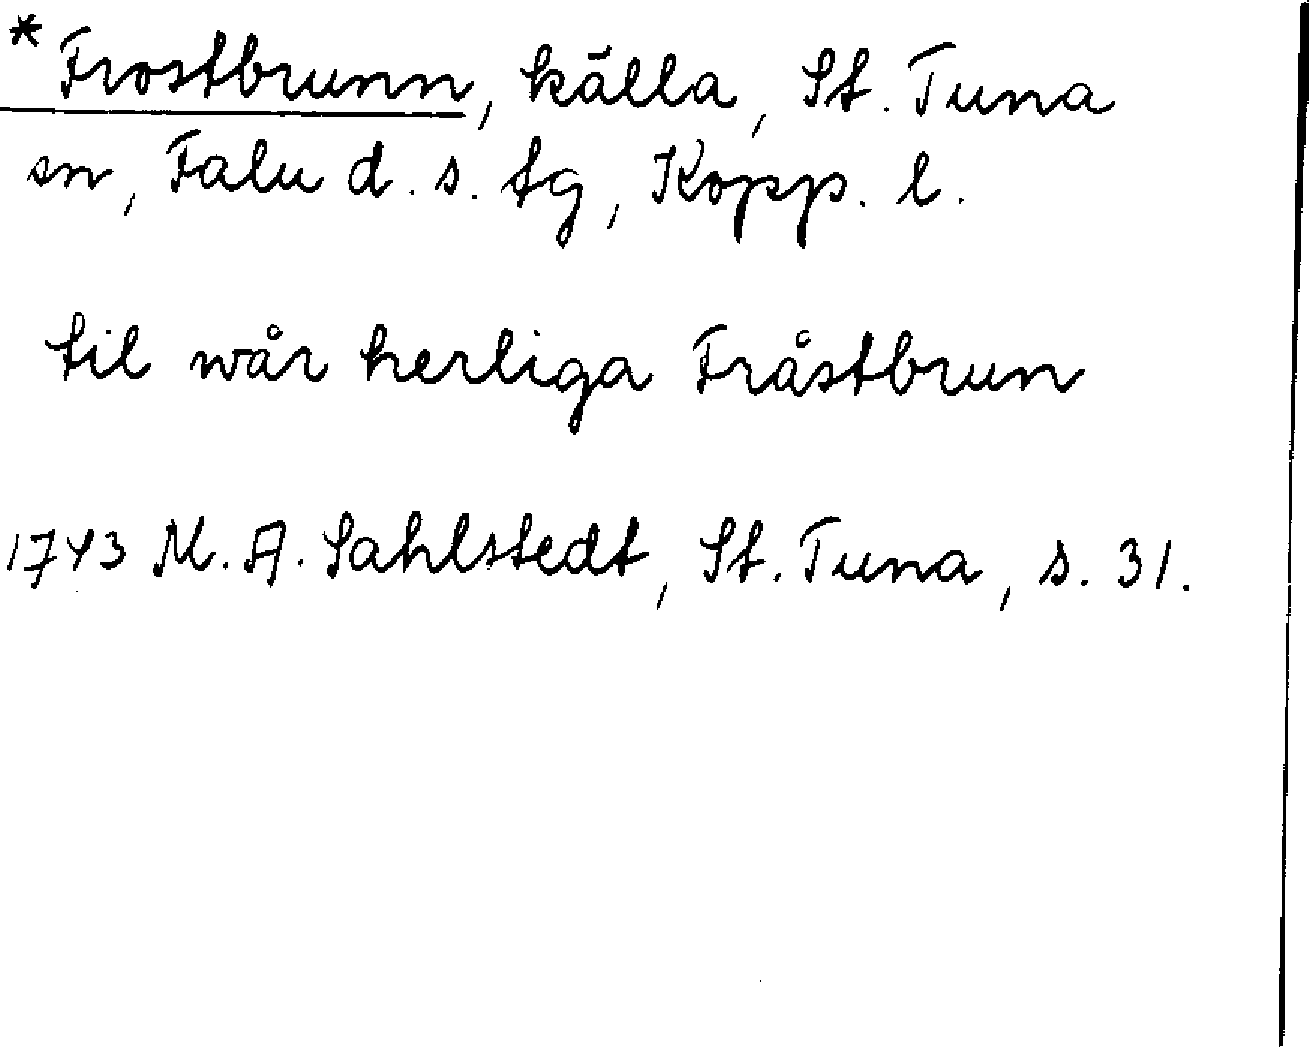 *Frostbrunn, källa, St. Tuna
sn, Falu d. s. tg, Kopp. l.
til wår herliga Fråstbrun
1743 M. A. Sahlstedt, St. Tuna, s. 31.